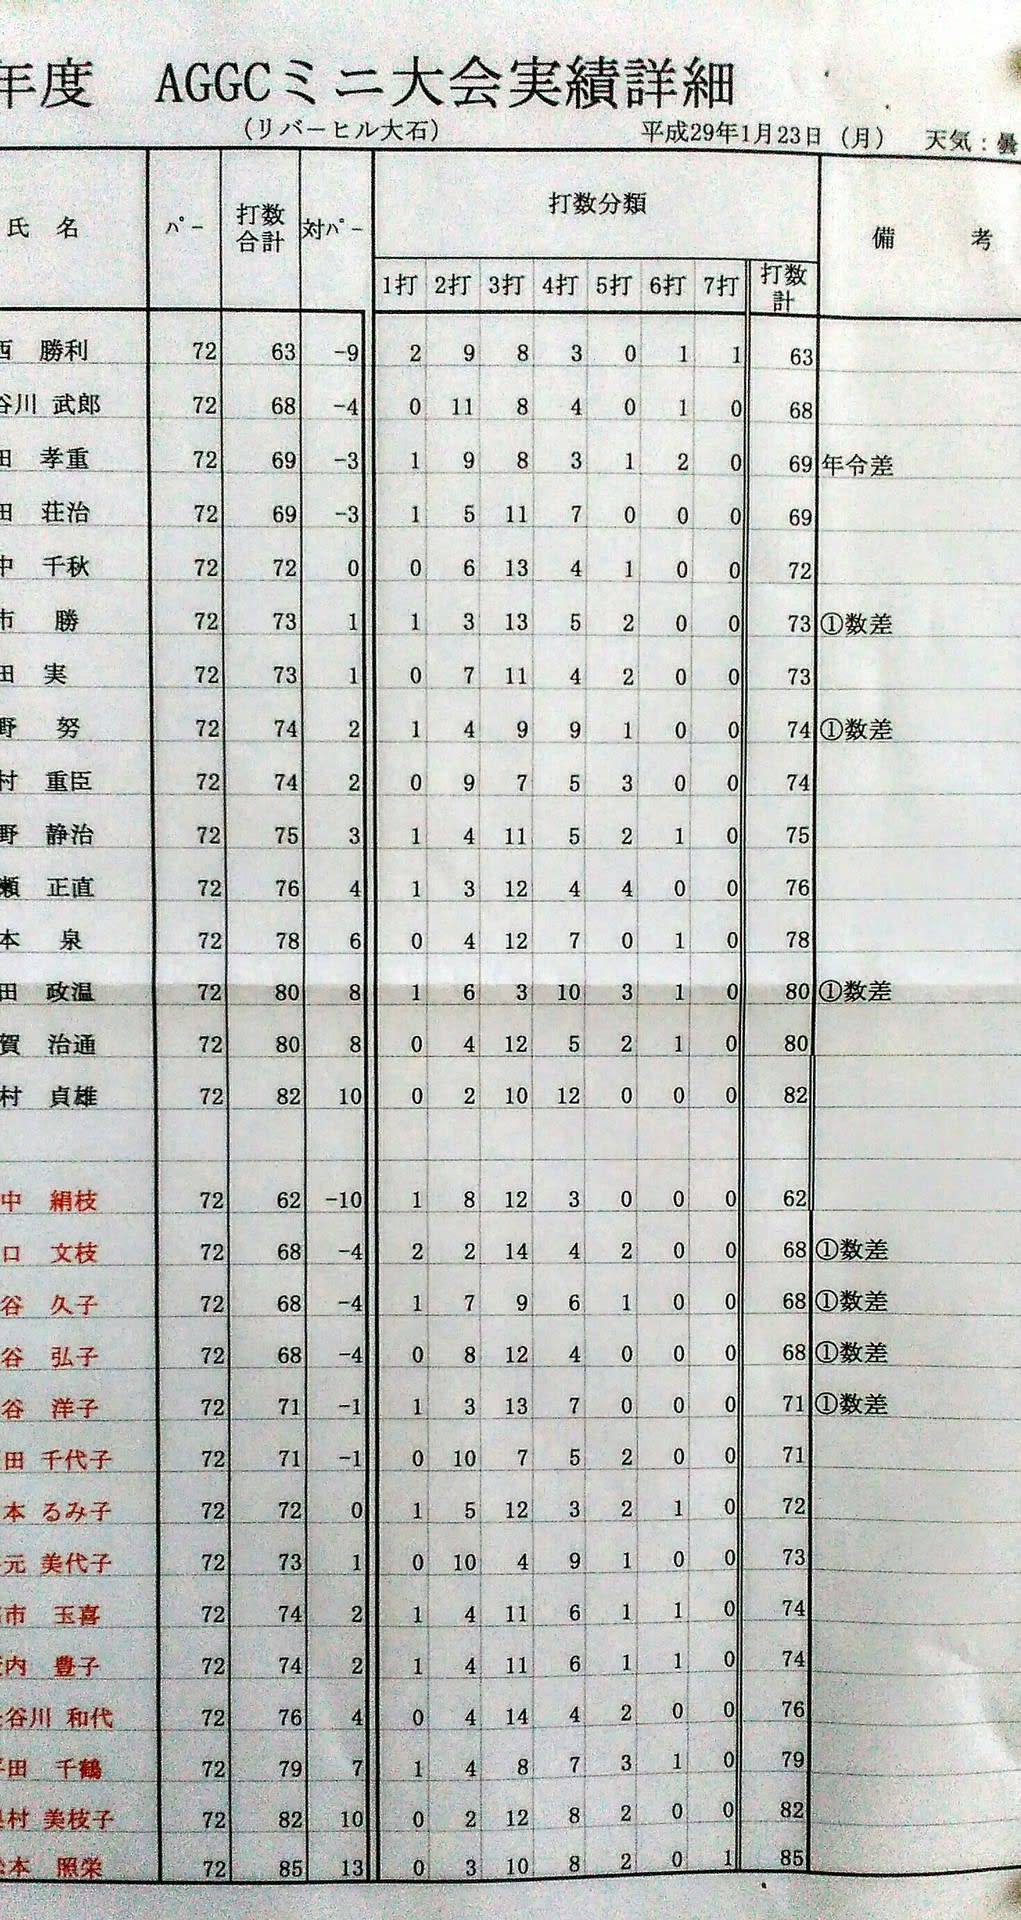 年度 AGGCミニ大会実績詳細
(リバーヒル大石) 平成29年1月23日(月) 天気:曇
氏 名 パー 打数合計 対パー 打数分類 備 考
1打 2打 3打 4打 5打 6打 7打 打数計
西 勝利 72 63 -9 2 9 8 3 0 1 1 63
谷川 武郎 72 68 -4 0 11 8 4 0 1 0 68
田 孝重 72 69 -3 1 9 8 3 1 2 0 69 年令差
田 荘治 72 69 -3 1 5 11 7 0 0 0 69
中 千秋 72 72 0 0 6 13 4 1 0 0 72
市 勝 72 73 1 1 3 13 5 2 0 0 73 ①数差
田 実 72 73 1 0 7 11 4 2 0 0 73
野 努 72 74 2 1 4 9 9 1 0 0 74 ①数差
村 重臣 72 74 2 0 9 7 5 3 0 0 74
野 静治 72 75 3 1 4 11 5 2 1 0 75
瀬 正直 72 76 4 1 3 12 4 4 0 0 76
本 泉 72 78 6 0 4 12 7 0 1 0 78
田 政温 72 80 8 1 6 3 10 3 1 0 80 ①数差
賀 治通 72 80 8 0 4 12 5 2 1 0 80
村 貞雄 72 82 10 0 2 10 12 0 0 0 82
中 絹枝 72 62 -10 1 8 12 3 0 0 0 62
口 文枝 72 68 -4 2 2 14 4 2 0 0 68 ①数差
谷 久子 72 68 -4 1 7 9 6 1 0 0 68 ①数差
谷 弘子 72 68 -4 0 8 12 4 0 0 0 68 ①数差
谷 洋子 72 71 -1 1 3 13 7 0 0 0 71 ①数差
田 千代子 72 71 -1 0 10 7 5 2 0 0 71
本 るみ子 72 72 0 1 5 12 3 2 1 0 72
元 美代子 72 73 1 0 10 4 9 1 0 0 73
市 玉喜 72 74 2 1 4 11 6 1 1 0 74
内 豊子 72 74 2 1 4 11 6 1 1 0 74
谷川 和代 72 76 4 0 4 14 4 2 0 0 76
田 千鶴 72 79 7 1 4 8 7 3 1 0 79
村 美枝子 72 82 10 0 2 12 8 2 0 0 82
本 照栄 72 85 13 0 3 10 8 2 0 1 85